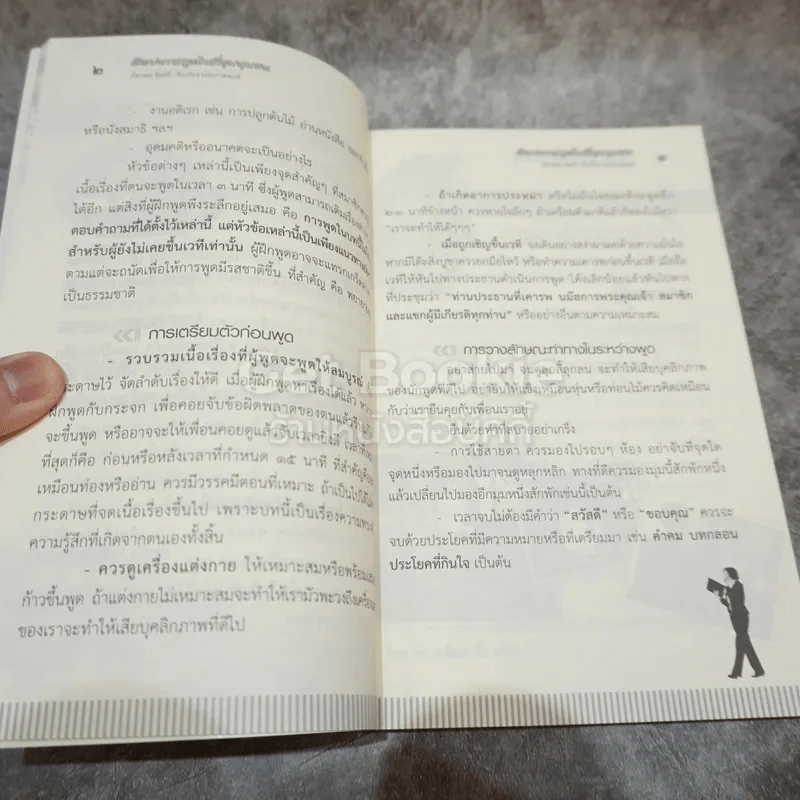 ๒
- งานอดิเรก เช่น การปลูกต้นไม้ อ่านหนังสือ
หรือนั่งสมาธิ ฯลฯ
- อุดมคติหรืออนาคตจะเป็นอย่างไร
หัวข้อต่างๆ เหล่านี้เป็นเพียงจุดสำคัญๆ ที่
เนื้อเรื่องที่ตนจะพูดในเวลา ๓ นาที ซึ่งผู้พูดสามารถเติมเรื่อง
ได้อีก แต่สิ่งที่ผู้ฝึกพูดพึงระลึกอยู่เสมอ คือ การพูดในบทนี้
ตอบคำถามที่ได้ตั้งไว้เหล่านี้ แต่หัวข้อเหล่านี้เป็นเพียงแนวทาง
สำหรับผู้ยังไม่เคยขึ้นเวทีเท่านั้น ผู้ฝึกพูดอาจจะแทรกเกร็ด
ตามแต่จะถนัดเพื่อให้การพูดมีรสชาติขึ้น ที่สำคัญ คือ
เป็นธรรมชาติ
การเตรียมตัวก่อนพูด
- รวบรวมเนื้อเรื่องที่ผู้พูดจะพูดให้สมบูรณ์
ระดาษไว้ จัดลำดับเรื่องให้ดี เมื่อผู้ฝึกพูดหาเรื่องได้แล้ว
ฝึกพูดกับกระจก เพื่อคอยจับข้อผิดพลาดของตนแล้ว
จะขึ้นพูด หรืออาจจะให้เพื่อนคอยดูแล
ที่สุดก็คือ ก่อนหรือหลังเวลาที่กำหนด ๑๕ นาที ที่สำคัญ
เหมือนท่องหรืออ่าน ควรมีวรรคมีตอนที่เหมาะ ถ้าเป็นไปได้
กระดาษที่จดเนื้อเรื่องขึ้นไป เพราะบทนี้เป็นเรื่องความ
ความรู้สึกที่เกิดจากตนเองทั้งสิ้น
- ควรดูเครื่องแต่งกาย ให้เหมาะสมหรือพร้อม
ก้าวขึ้นพูด ถ้าแต่งกายไม่เหมาะสมจะทำให้เรามัวพะวงถึง
ของเราจะทำให้เสียบุคลิกภาพที่ดีไป
- ถ้าเกิดอาการประหม่า
๒-๓ นาทีข้างหน้า ควรหายใจลึกๆ
"เราจะทำให้ได้ๆๆๆ"
- เมื่อถูกเชิญขึ้นเวที
หากมีโต๊ะสิ่งบูชาควรยกมือไหว้ หรือทำความเคารพก่อนขึ้นเวที
เวทีให้หันไปทางประธานดำเนินการพูด โค้งเล็กน้อยแล้วหันไปทาง
ที่ประชุมว่า "ท่านประธานที่เคารพ นมัสการพระคุณเจ้า สมาชิก
และแขกผู้มีเกียรติทุกท่าน" หรืออย่างอื่นตามความเหมาะสม
การวางลักษณะท่าทางในระหว่างพูด
อย่าส่ายไปมา จนดูลุกลี้ลุกลน จะทำให้เสียบุคลิกภาพ
ของนักพูดที่ดีได้ อย่ายืนให้แข็งเหมือนหุ่นหรือท่อนไม้ควรคิดเหมือน
กับว่าเรายืนคุยกับเพื่อนเราอยู่
ยืนด้วยท่าที่สบายอย่าเกร็ง
- การใช้สายตา ควรมองไปรอบๆ ห้อง อย่าจับที่จุดใด
จุดหนึ่งหรือมองไปมาจนดูหลุกหลิก ทางที่ดีควรมองมุมนี้สักพักหนึ่ง
แล้วเปลี่ยนไปมองอีกมุมหนึ่งสักพักเช่นนี้เป็นต้น
- เวลาจบไม่ต้องมีคำว่า "สวัสดี" หรือ "ขอบคุณ" ควรจะ
จบด้วยประโยคที่มีความหมายหรือที่เตรียมมา เช่น คำคม บทกลอน
ประโยคที่กินใจ เป็นต้น
Get Bookie
ร้านหนังสือบุ๊คกี้